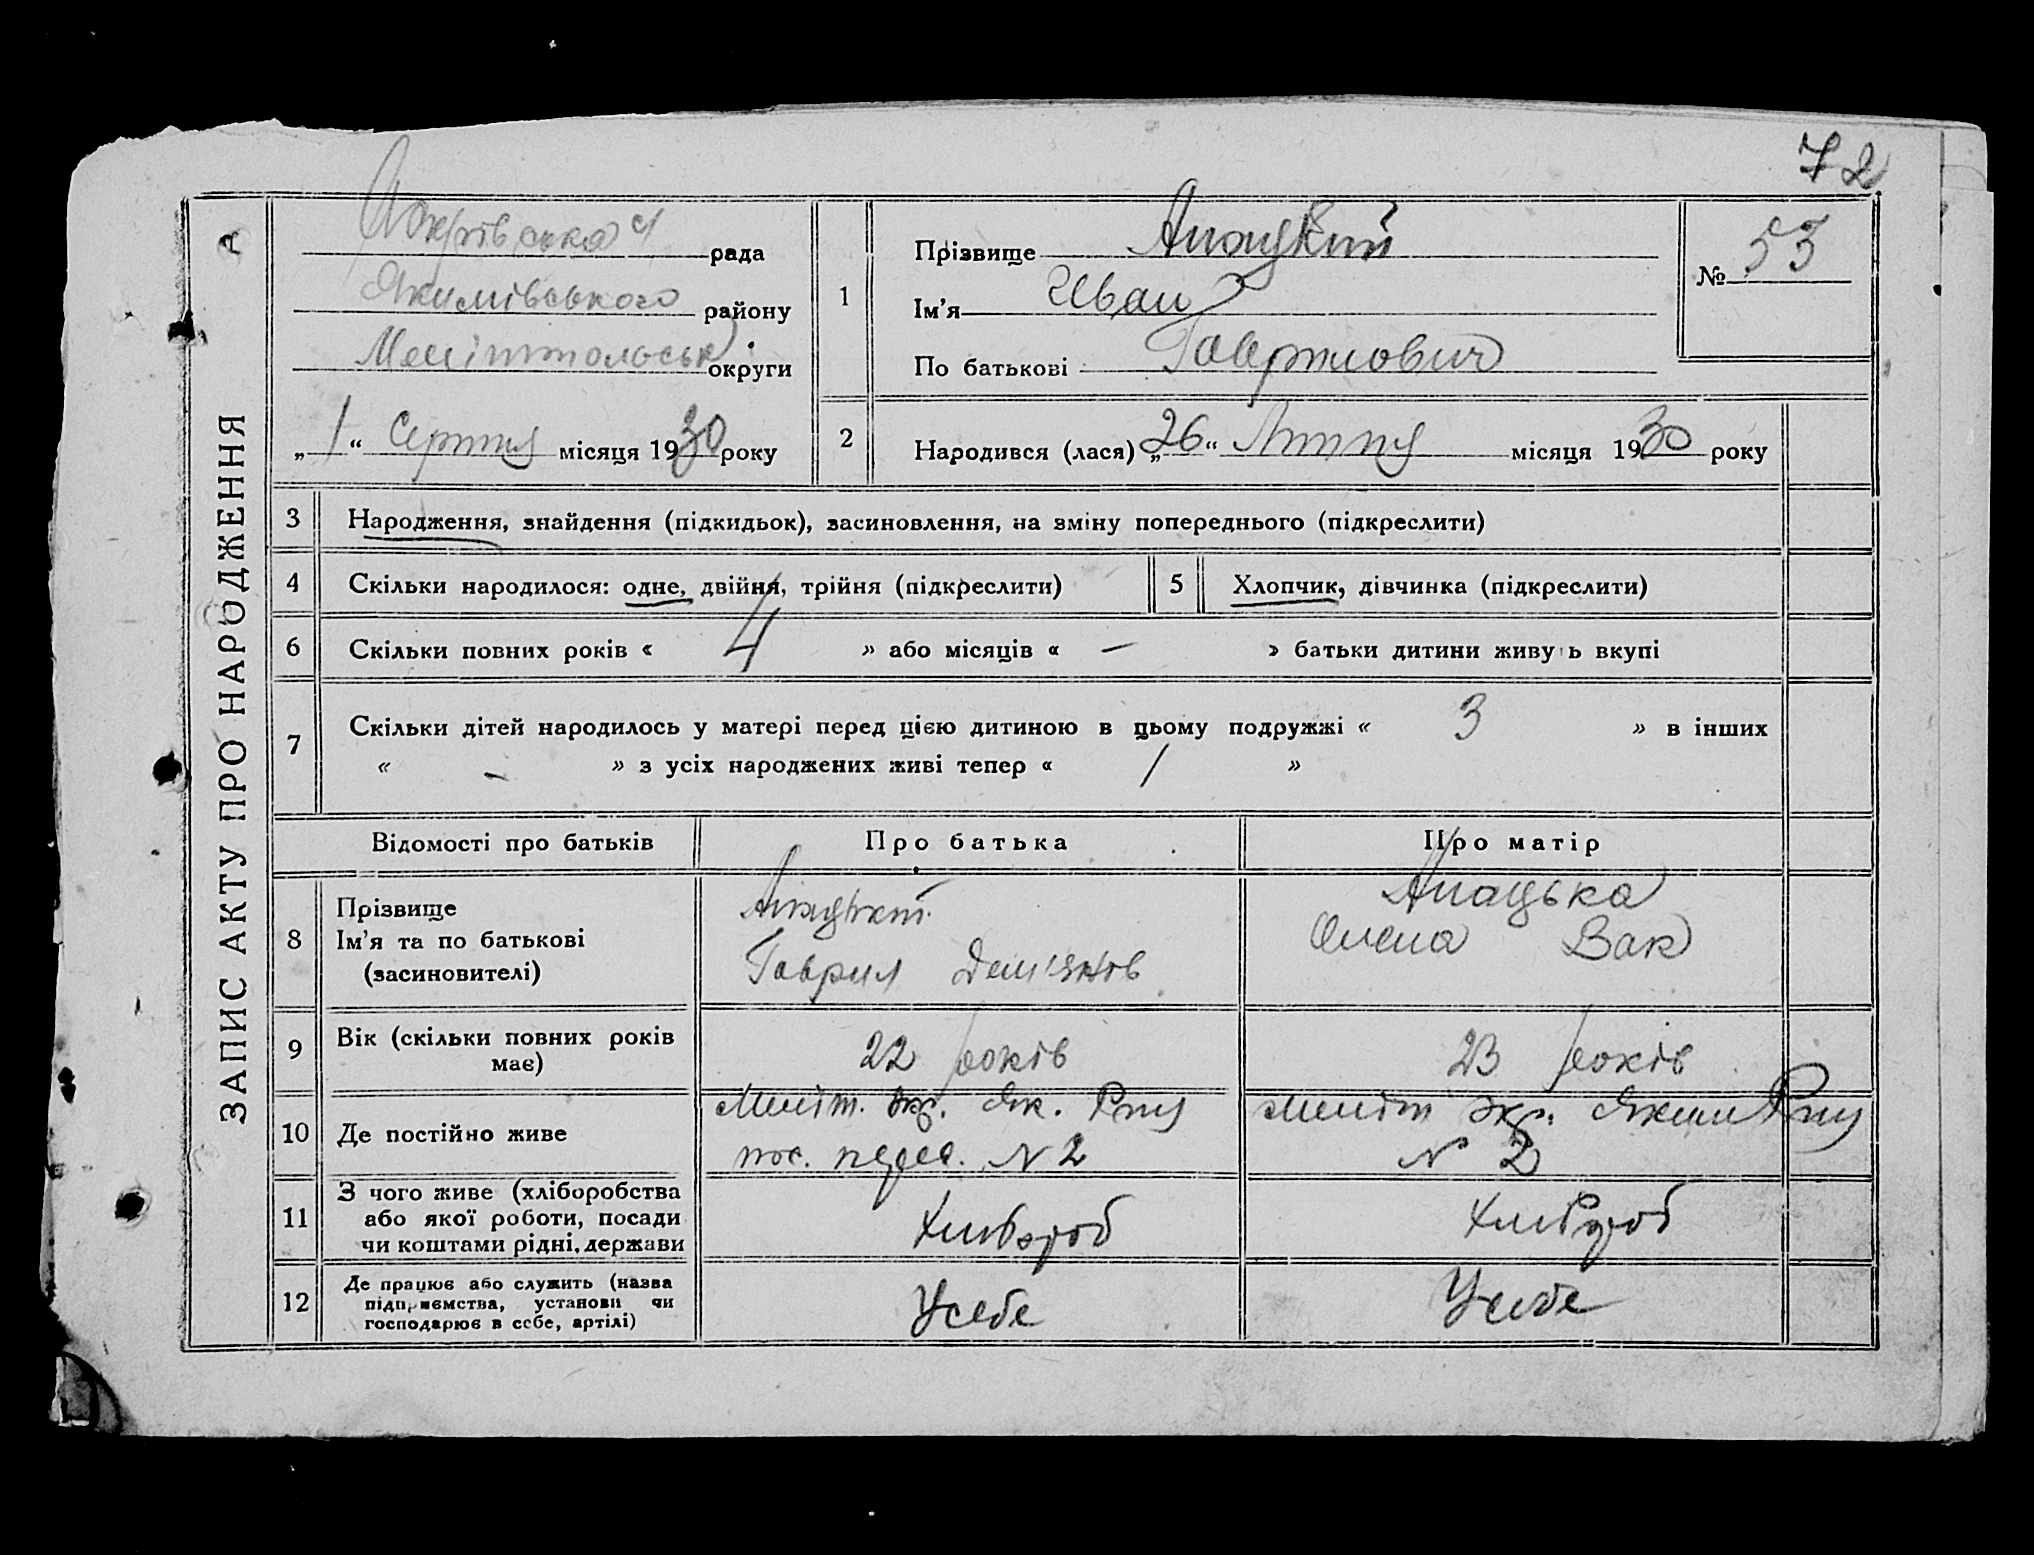 72
ЗАПИС АКТУ ПРО НАРОДЖЕННЯ
рада
Якимівського району
округи
„1“ Серпня місяця 1930 року
1
Прізвище Апацкий
Ім'я Иван
По батькові Гаврилович
№ 53
2
Народився (лася) „26“ Липня місяця 1930 року
3 Народження, знайдення (підкидьок), засиновлення, на зміну попереднього (підкреслити)
4 Скільки народилося: одне, двійня, трійня (підкреслити)
5 Хлопчик, дівчинка (підкреслити)
6 Скільки повних років « 4 » або місяців « – » батьки дитини живуть вкупі
7 Скільки дітей народилось у матері перед цією дитиною в цьому подружжі « 3 » в інших
« – » з усіх народжених живі тепер « 1 »
Відомості про батьків Про батька Про матір
8 Прізвище
Ім'я та по батькові
(засиновителі)
Апацький
Гаврил Дем'янов
Апацька
Олена Вак
9 Вік (скільки повних років
має)
22 років
23 років
10 Де постійно живе
Меліт. окр. Як. Рну
пос. перес. N 2
Меліт окр. Яким Рну
N 2
11 З чого живе (хліборобства
або якої роботи, посади
чи коштами рідні, держави
Хлібороб
Хлібороб
12 Де працює або служить (назва
підприємства, установи чи
господарює в себе, артілі)
Усебе
Усебе